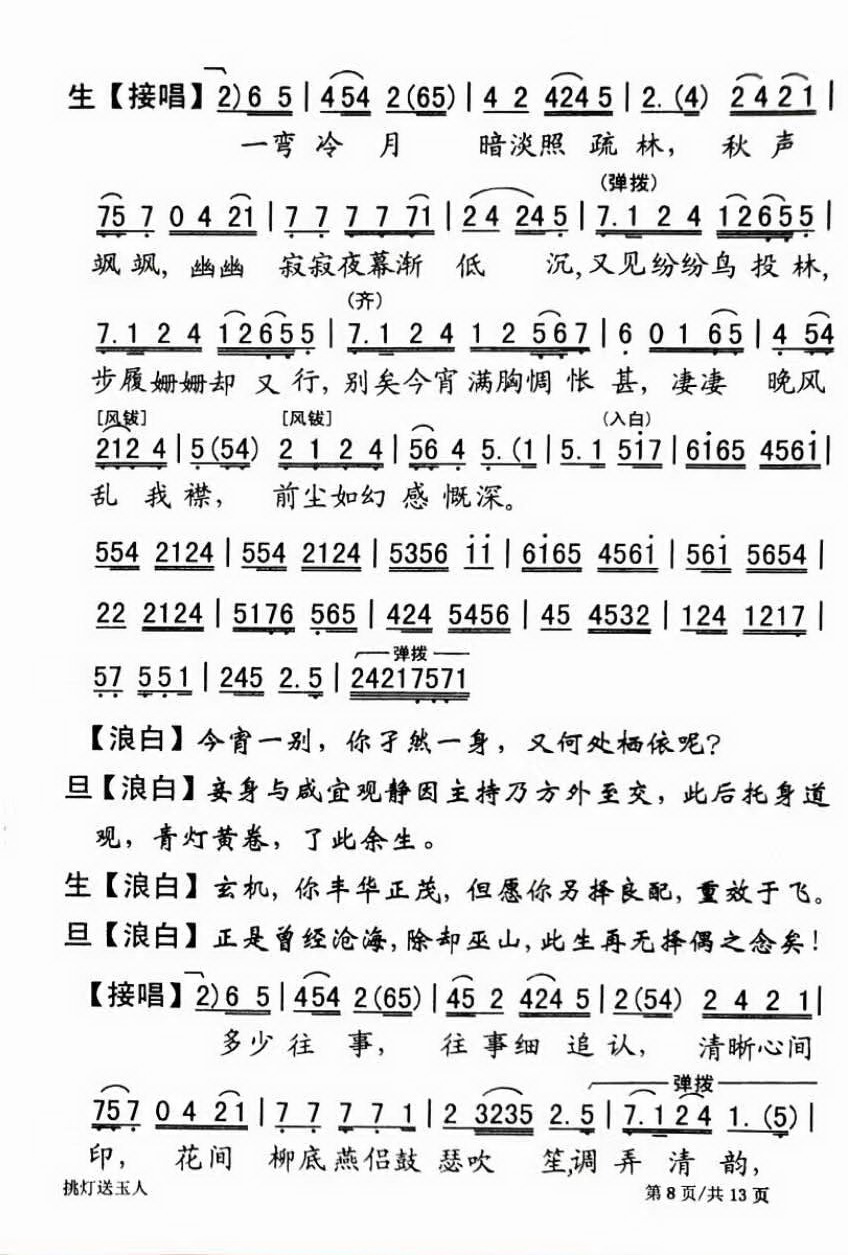 生【接唱】2)6 5 | 454 2(65) | 4 2 4245 | 2.(4) 2421 |
一弯冷月 暗淡照疏林，秋声
75 7 0 4 21 | 7 7 7 7 71 | 24 245 | 7.1 2 4 12655 |
(弹拨)
飒飒，幽幽 寂寂夜幕渐低 沉，又见纷纷鸟投林，
(齐)
7.1 2 4 12655 | 7.1 2 4 1 2 567 | 6 0 1 65 | 4 54
步履姗姗却又行，别矣今宵满胸惆怅甚，凄凄 晚风
[风钹] [风钹] (入白)
212 4 | 5(54) 2 1 2 4 | 56 4 5.(1 | 5.1 517 | 6165 4561 |
乱我襟， 前尘如幻感慨深。
554 2124 | 554 2124 | 5356 11 | 6165 4561 | 561 5654 |
22 2124 | 5176 565 | 424 5456 | 45 4532 | 124 1217 |
弹拨
57 551 | 245 2.5 | 24217571
【浪白】今宵一别，你孑然一身，又何处栖依呢？
旦【浪白】妾身与咸宜观静因主持乃方外至交，此后托身道
观，青灯黄卷，了此余生。
生【浪白】玄机，你丰华正茂，但愿你另择良配，重效于飞。
旦【浪白】正是曾经沧海，除却巫山，此生再无择偶之念矣！
【接唱】2)6 5 | 454 2(65) | 45 2 424 5 | 2(54) 2 4 2 1 |
多少往事， 往事细追认， 清晰心间
弹拨
757 0 4 21 | 7 7 7 7 1 | 2 3235 2.5 | 7.124 1.(5) |
印， 花间 柳底燕侣鼓瑟吹 笙，调弄清韵，
挑灯送玉人
第 8 页/共 13 页